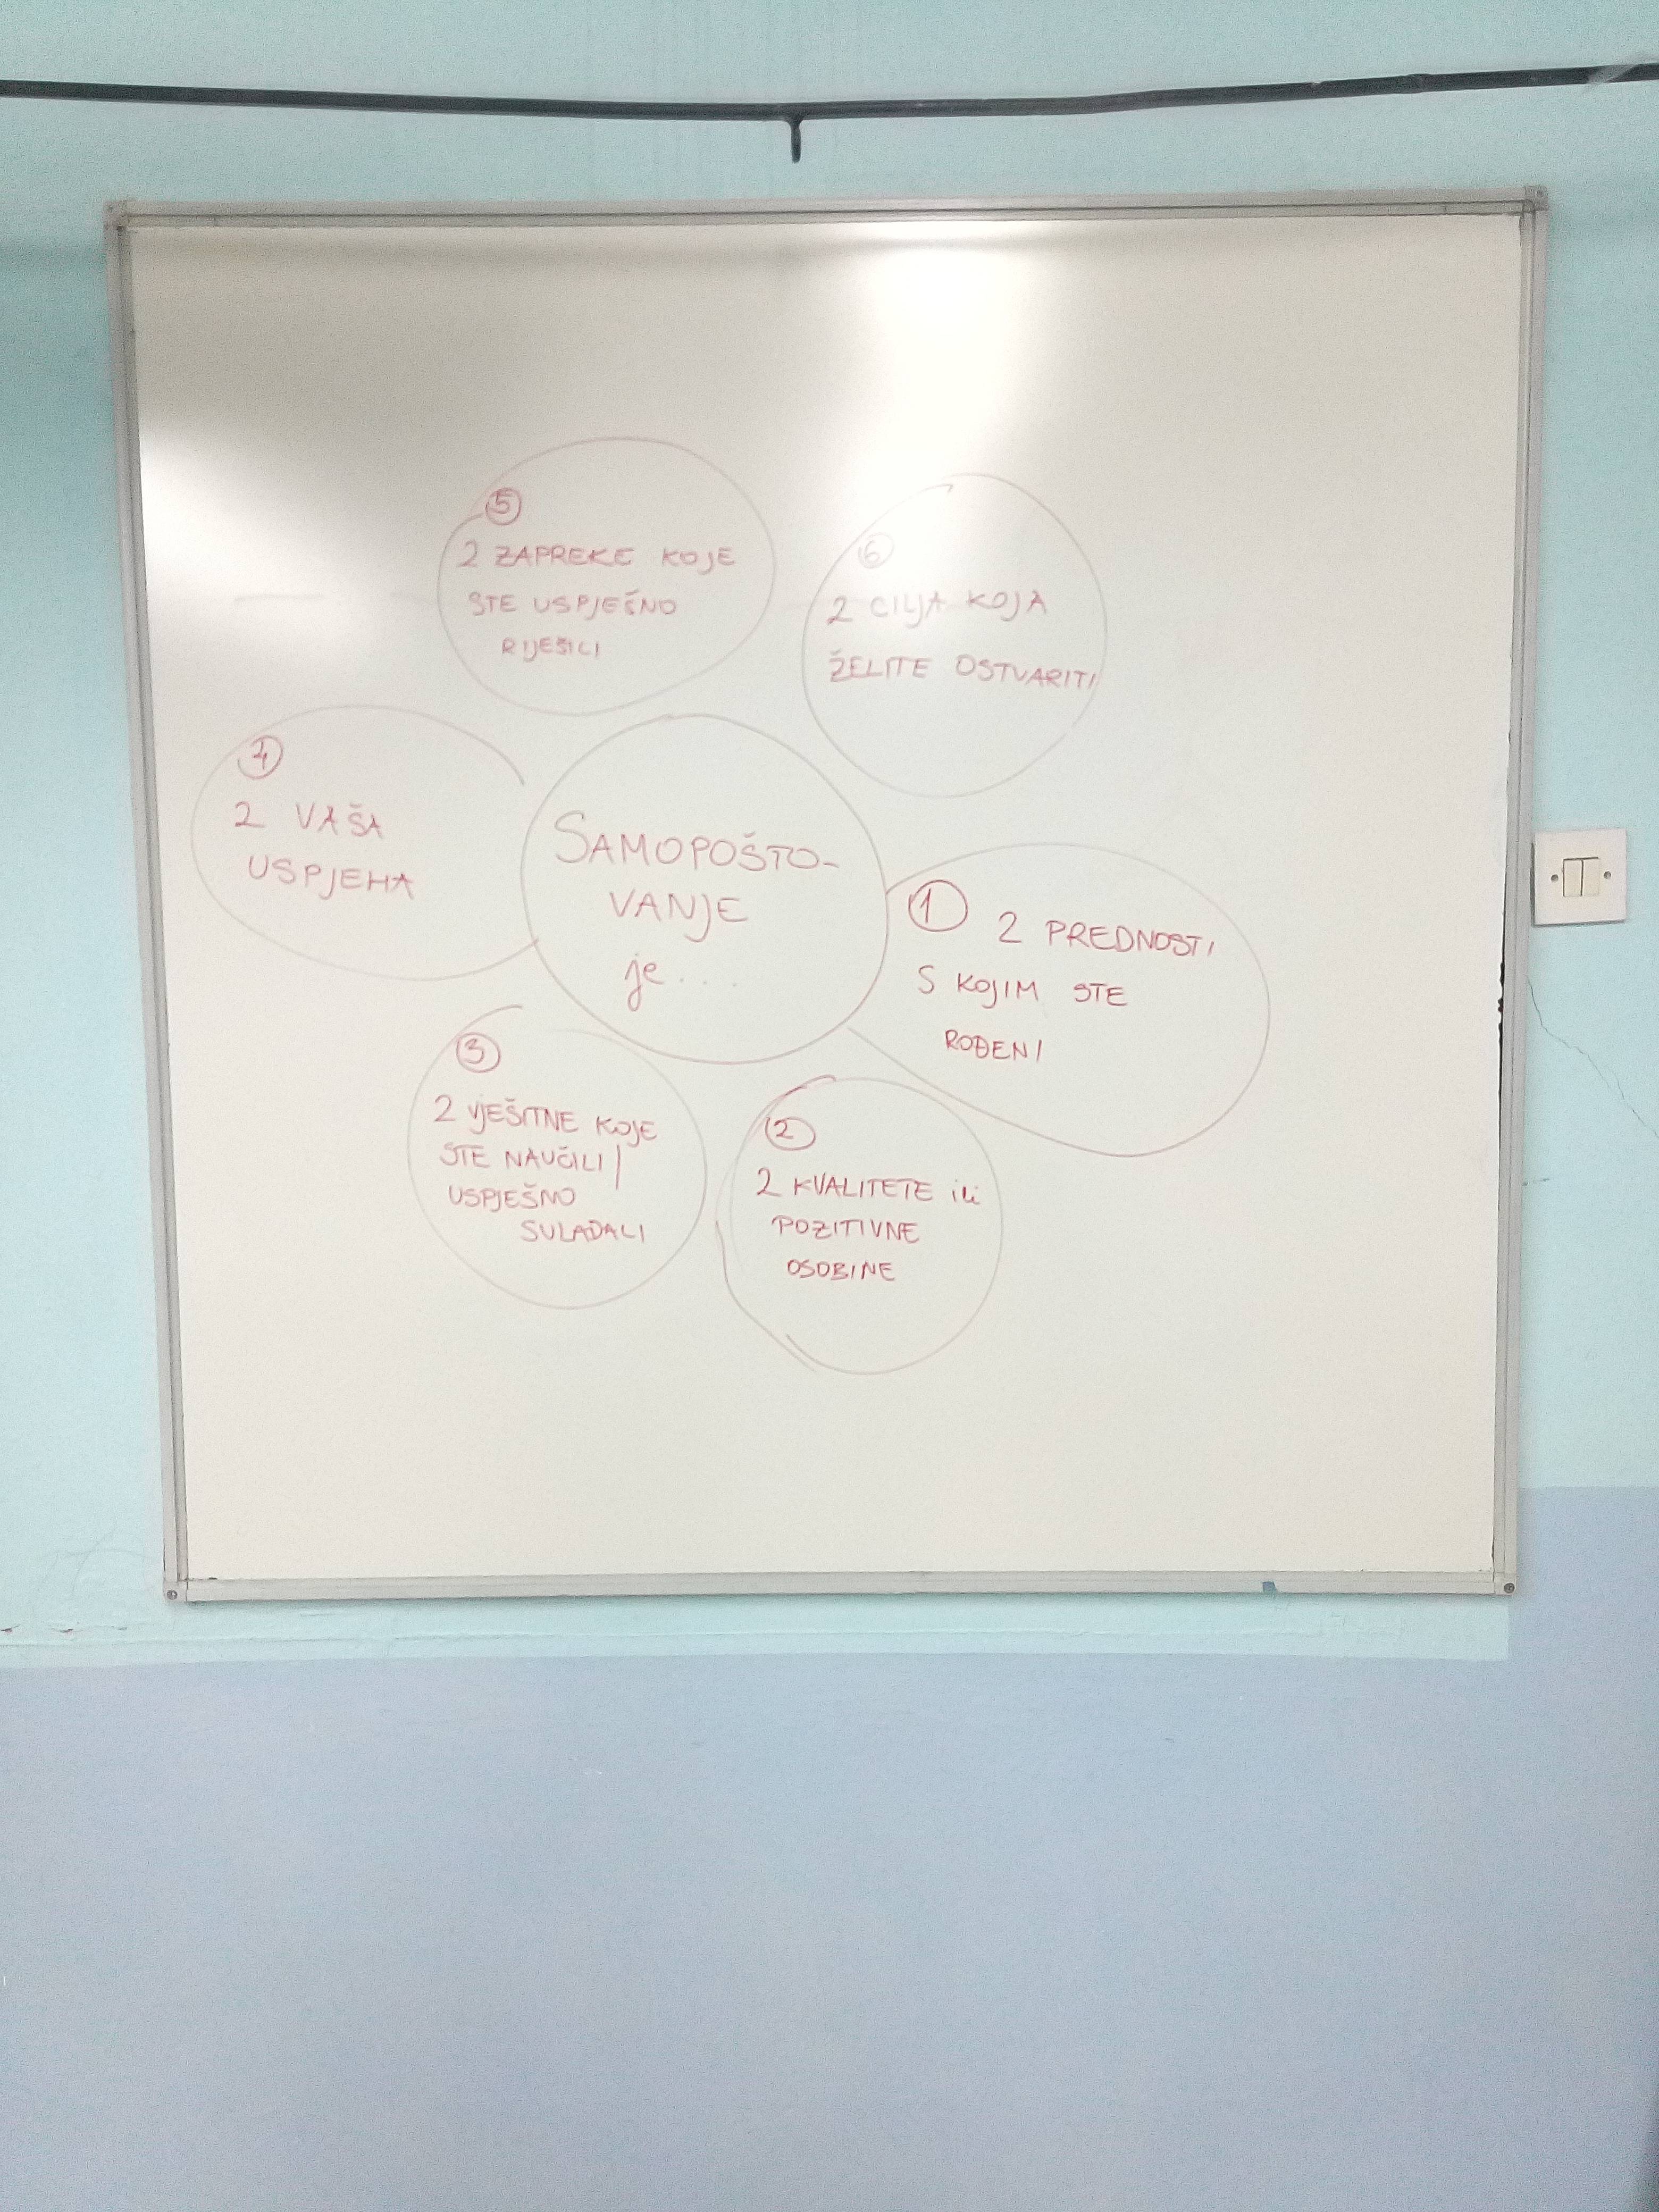 SAMOPOŠTO-
VANJE
je...
1
2 PREDNOSTI
S KOJIM STE
ROĐENI
2
2 KVALITETE ili
POZITIVNE
OSOBINE
3
2 VJEŠITNE KOJE
STE NAUČILI/
USPJEŠNO
SULADALI
4
2 VAŠA
USPJEHA
5
2 ZAPREKE KOJE
STE USPJEŠNO
RIJEŠILI
6
2 CILJA KOJA
ŽELITE OSTVARITI